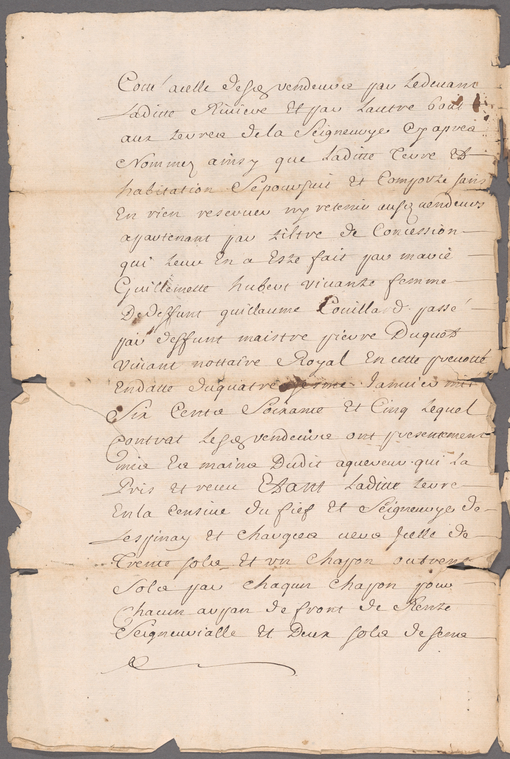 Cont' a celle desd vendeurs par le devant
Laditte Riviere Et par Lautre bout
aux terres de la Seigneurye Cy apres
Nommez ainsy que Laditte terre Et
habitation Se poursuit et Comporte sans
En rien reserver ny retenir ausd vendeurs
apartenant par tiltre de Concession
qui leur En a Esté fait par marie
Guillemette hubert vivante femme
De Deffunt guillaume Couillard passé
par deffunt maistre pierre Duquet
vivant nottaire Royal En cette prevosté
En datte du quatre Janvier mil
Six Cents Soixante et Cinq Lequel
Contrat Lesd vendeurs ont presentement
mis Es mains Dudit aquereur qui La
Pris et receu Estant Laditte terre
En la Censive du fief et Seigneurye de
Lespinay et Chargées vers Icelle de
Trente sols et un Chapon ou trente
Sols par Chaqun Chapon pour
Chacun arpan de front de Rente
Seigneurialle et Deux sols de sens